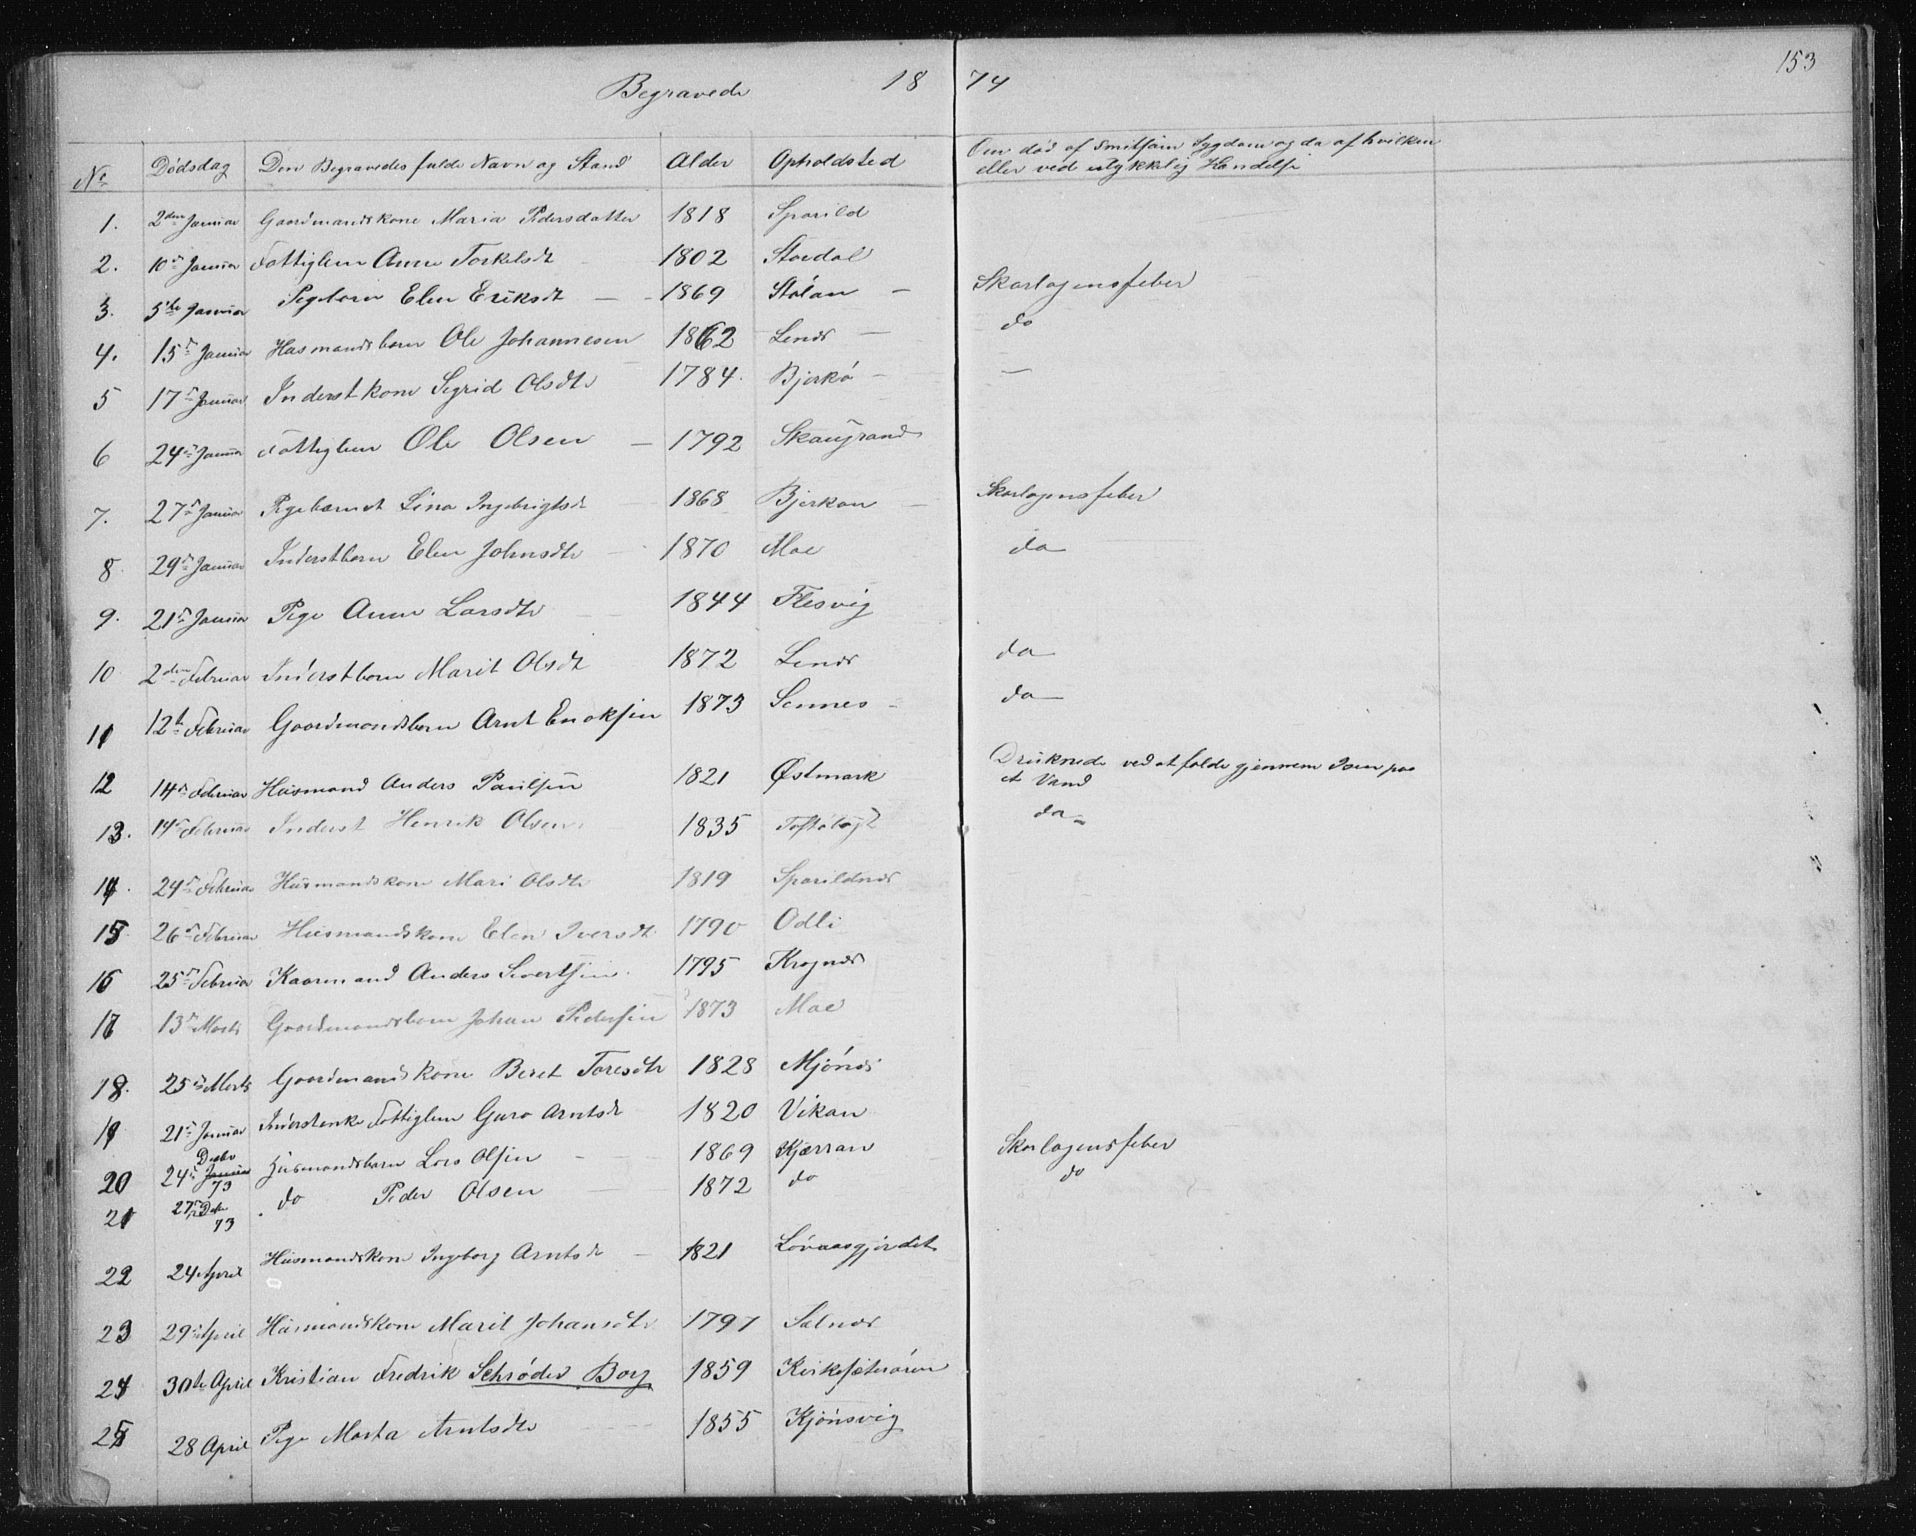 153
Begravede 1874
No Dødsdag Den Begravedes fulde Navn og Stand Alder Opholdsted Om død af Smitsom Sygdom og da af hvilken
eller ved ulykkelig Hendelse
1. 2den Januar Gaardmandskone Maria Pedersdatter 1818 Sporild
2. 10de Januar Fattiglem Anne Torkelsdt 1802 Stordal
3. 5te Januar Pigebarn Elen Eriksdt 1869 Stølan Skarlagensfeber
4. 15d Januar Husmandsbarn Ole Johannesen 1862 Lenes do
5 17d Januar Inderstkone Sigrid Olsdtr 1784. Bjerkø —
6 24d Januar Fattiglem Ole Olsen 1792
7. 27d Januar Pigebarnet Lina Ingebrigtsdt 1868 Bjerkan Skarlagensfeber
8. 29d Januar Inderstbarn Elen Johnsdtr 1870 Moe do
9. 21d Januar Pige Anne Larsdtr 1844 Flesvig
10 2den Februar Inderstbarn Marit Olsdt 1872 Lenes do
11 12t Februar Gaardmandsbarn Arnt Enoksen 1873 Sennes do
12 14d Februar Husmand Anders Paulsen 1821 Østmark Druknede ved at falde gjennem Isen paa
et Vand
13. 14d Februar Inderst Henrik Olsen 1835 do
14. 24d Februar Husmandskone Mari Olsdtr 1819 Sporildnes
15. 26d Februar Husmandskone Elen Iversdt 1790 Odli
16 25d Februar Kaarmand Anders Sivertsen 1795 Krognes
17 13d Marts Gaardmandsbarn Johan Pedersen 1873 Moe
18. 25d Marts Gaardmandskone Beret Toresdtr 1828 Mjónes
19 21d Januar Inderstenke Fattiglem Guro Arntsdt 1820 Vikan
20 24d Januar Decbr 73 Husmandsbarn Lars Olsen 1869 Kjærran Skarlagensfeber
21 27d Decbr 73 do Peder Olsen 1872 do do
22 24 April Husmandskone Ingeborg Arntsdt 1821 Lóvaasgjerdet
23 29d April Husmandskone Marit Johansdtr 1797 Salnes
24 30te April Kristian Fredrik Schrøder Borg 1859 Kirksæterøren
25 28 April Pige Marta Arntsdtr 1855 Kjónsvig